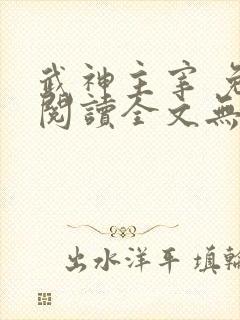 武神主宰 免
閱讀全文無
出水洋平 填輪